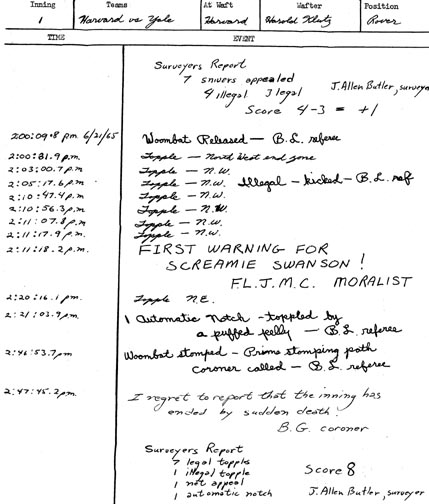 Inning Teams At Waft Wafter Position
1 Harvard vs Yale Harvard Harold Klutz Rover
TIME EVENT
Surveyors Report
7 snivers appealed
4 illegal 3 legal J. Allen Butler, surveyor
Score 4-3 = +1
2:00:09.8 pm 6/21/65 Woombat Released — B.L. referee
2:00:31.9 p.m. Topple — North West end zone
2:03:00.7 p.m Topple — N.W.
2:05:17.6 p.m Topple — N.W. Illegal - kicked — B.L. ref
2:10:47.4 p.m Topple — N.W.
2:10:56.3 p.m Topple — N.W.
2:11:07.8 p.m Topple — N.W.
2:11:17.9 p.m. Topple — N.W.
2:11:18.2 p.m. FIRST WARNING FOR
SCREAMIE SWANSON!
FL. J.M.C. MORALIST
2:20:16.1 p.m. Topple N.E.
2:21:03.9 p.m. 1 Automatic Notch - toppled by
a puffed pelly — B.L. referee
2:46:53.7 pm Woombat stomped - Prime stomping path
coroner called — B.L. referee
2:47:45.2 p.m. I regret to report that the inning has
ended by sudden death!
B.G. coroner
Surveyors Report
7 legal topples
1 illegal topple Score 8
1 not appeal
1 automatic notch J. Allen Butler, surveyor